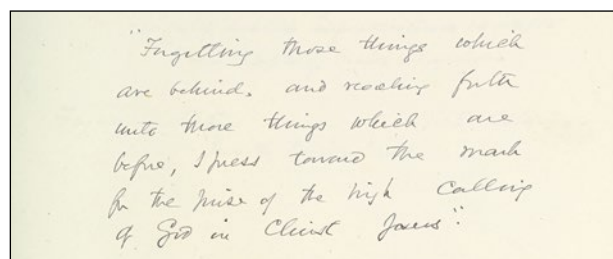 "Forgetting those things which
are behind, and reaching forth
unto those things which are
before, I press toward the mark
for the prize of the high calling
of God in Christ Jesus".